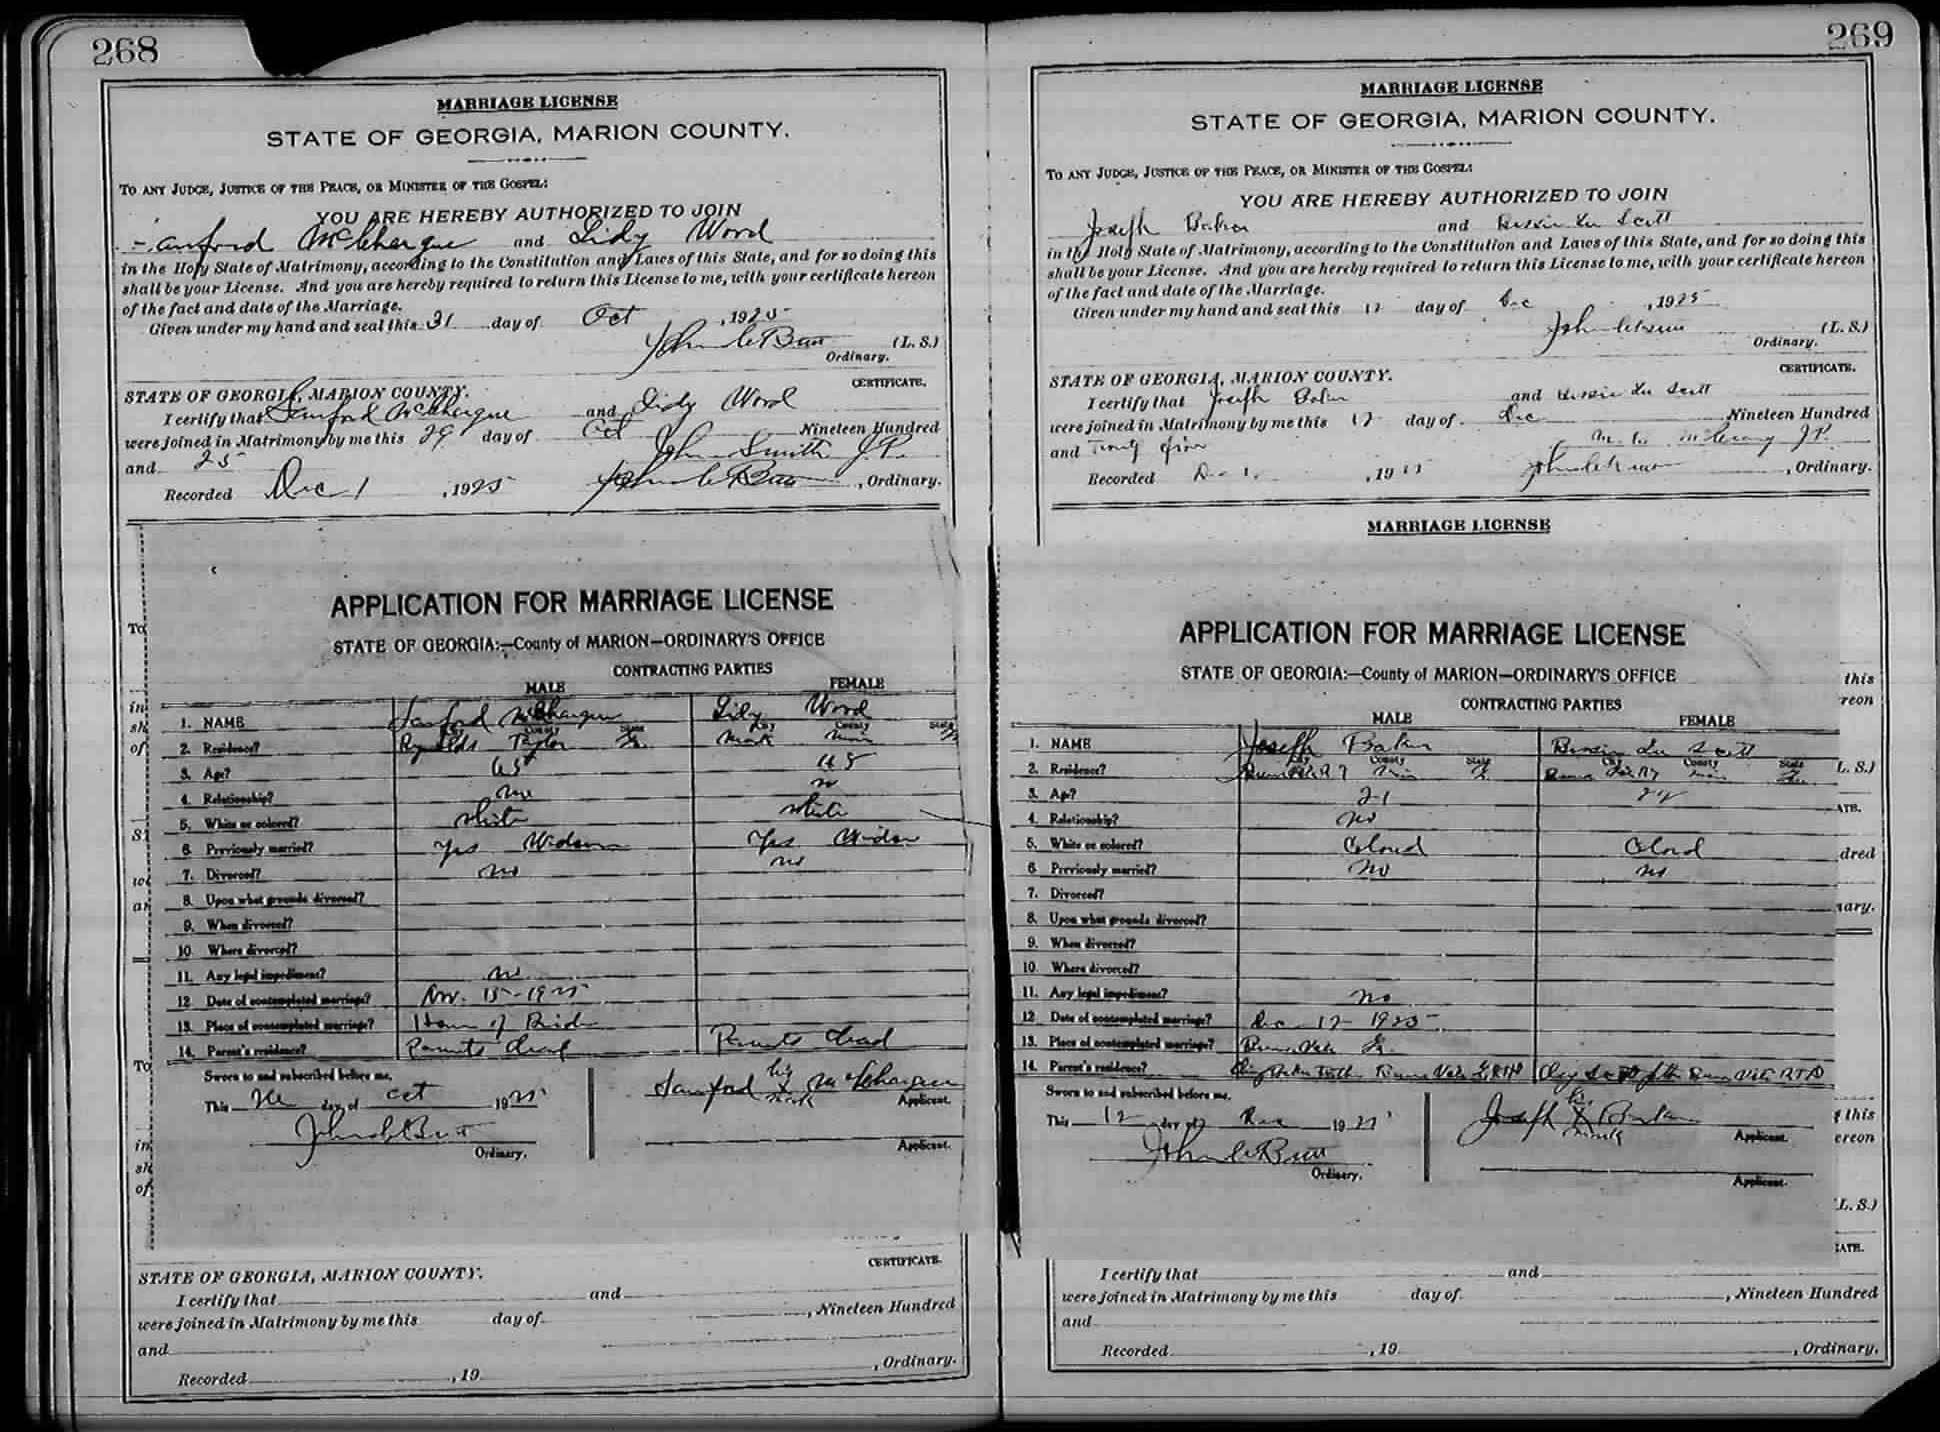 268
MARRIAGE LICENSE
STATE OF GEORGIA, MARION COUNTY.
TO ANY JUDGE, JUSTICE OF THE PEACE, OR MINISTER OF THE GOSPEL:
YOU ARE HEREBY AUTHORIZED TO JOIN
anford McGhargue and Lidy Word
in the Holy State of Matrimony, according to the Constitution and Laws of this State, and for so doing this
shall be your License. And you are hereby required to return this License to me, with your certificate hereon
of the fact and date of the Marriage.
Given under my hand and seal this 31 day of Oct , 1925
John C Butt (L. S.)
Ordinary.
CERTIFICATE.
STATE OF GEORGIA, MARION COUNTY.
I certify that Sanford and Lidy Word
were joined in Matrimony by me this 29 day of Oct Nineteen Hundred
and 25 John Smith J.P.
Recorded Dec 1 , 1925 John C Butt , Ordinary.
To
in
sh
of
APPLICATION FOR MARRIAGE LICENSE
STATE OF GEORGIA:—County of MARION—ORDINARY'S OFFICE
CONTRACTING PARTIES
MALE FEMALE
1. NAME Sanford Lidy Word
2. Residence? City County State City County State
Reynolds Taylor Ga
3. Age? 65
4. Relationship? no no
5. White or colored? White White
6. Previously married? Yes Yes
7. Divorced? no no
8. Upon what grounds divorced?
9. When divorced?
10. Where divorced?
11. Any legal impediment? no
12. Date of contemplated marriage? Nov. 15-1925
13. Place of contemplated marriage? Home of Bride
14. Parent's residence? Parents dead Parents dead
Sworn to and subscribed before me,
This day of Oct 1925 Sanford his X mark
Applicant.
John C Butt
Ordinary. Applicant.
CERTIFICATE.
STATE OF GEORGIA, MARION COUNTY.
I certify that and
were joined in Matrimony by me this day of , Nineteen Hundred
and
Recorded , 19 , Ordinary.
269
MARRIAGE LICENSE
STATE OF GEORGIA, MARION COUNTY.
TO ANY JUDGE, JUSTICE OF THE PEACE, OR MINISTER OF THE GOSPEL:
YOU ARE HEREBY AUTHORIZED TO JOIN
Joseph Baker and Bessie Lu Scott
in the Holy State of Matrimony, according to the Constitution and Laws of this State, and for so doing this
shall be your License. And you are hereby required to return this License to me, with your certificate hereon
of the fact and date of the Marriage.
Given under my hand and seal this 12 day of Dec , 1925
John C Butt (L. S.)
Ordinary.
CERTIFICATE.
STATE OF GEORGIA, MARION COUNTY.
I certify that Joseph Baker and Bessie Lu Scott
were joined in Matrimony by me this 12 day of Dec Nineteen Hundred
and Twenty five J.P.
Recorded , 19 John C Butt , Ordinary.
MARRIAGE LICENSE
APPLICATION FOR MARRIAGE LICENSE
STATE OF GEORGIA:—County of MARION—ORDINARY'S OFFICE
CONTRACTING PARTIES
MALE FEMALE
1. NAME Joseph Baker Bessie Lu Scott
2. Residence? City County State City County State
3. Age? 21
4. Relationship? no
5. White or colored? Colored Colored
6. Previously married? No no
7. Divorced?
8. Upon what grounds divorced?
9. When divorced?
10. Where divorced?
11. Any legal impediment? no
12. Date of contemplated marriage? Dec 12 1925
13. Place of contemplated marriage? Buena Vista Ga.
14. Parent's residence?
Sworn to and subscribed before me,
This 12 day of Dec 19 Joseph his X mark Baker
Applicant.
John C Butt
Ordinary. Applicant.
this
reon
L. S.)
ATE.
dred
nary.
this
ereon
L. S.)
CATE.
I certify that and
were joined in Matrimony by me this day of , Nineteen Hundred
and
Recorded , 19 , Ordinary.